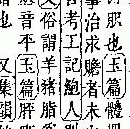 也玉篇體
治求者未
考工記鮑人
俗謂羊豬脂
音平玉篇肝
又集韻